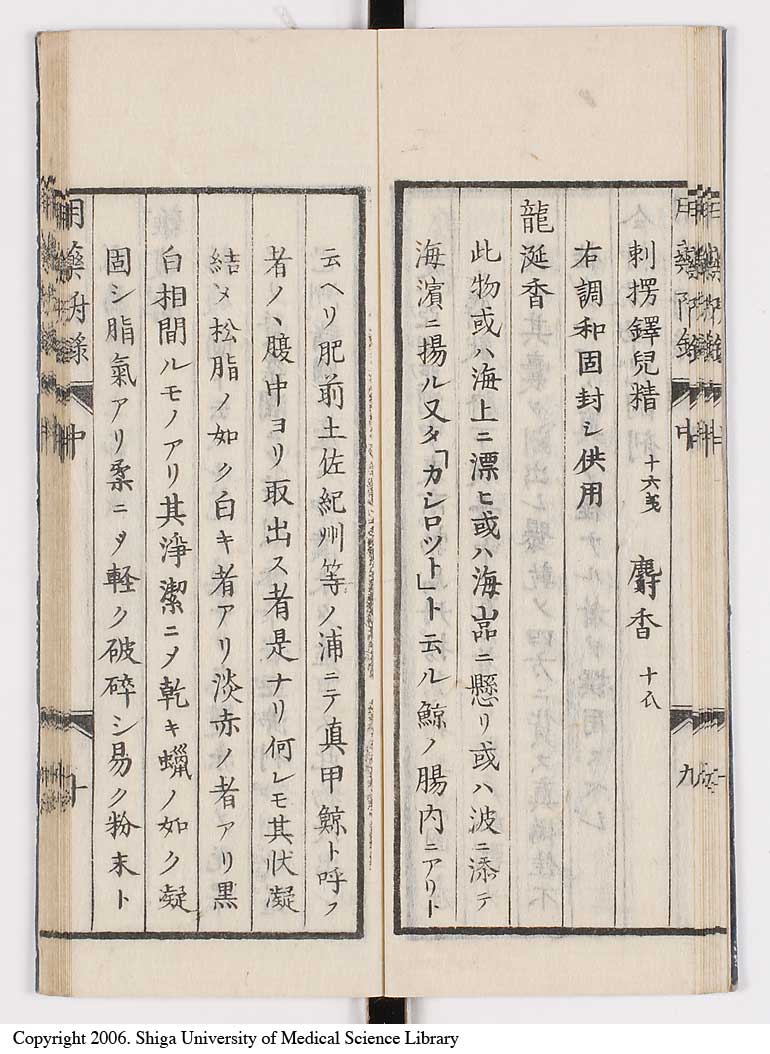 刺愣鐸兒精 十六戔 麝香 十八
右調和固封シ供用
龍涎香
此物或ハ海上ニ漂ヒ或ハ海嵓ニ懸リ或ハ波ニ添テ
海濱ニ揚ル又タ「カシロット」ト云ル鯨ノ腸内ニアリト
九
云ヘリ肥前土佐紀州等ノ浦ニテ真甲鯨ト呼フ
者ノ腹中ヨリ取出ス者是ナリ何レモ其状凝
結メ松脂ノ如ク白キ者アリ淡赤ノ者アリ黒
白相間ルモノアリ其浄潔ニメ乾キ蠟ノ如ク凝
固シ脂氣アリ柔ニメ軽ク破碎シ易ク粉末ト
用藥 中 十
Copyright 2006. Shiga University of Medical Science Library